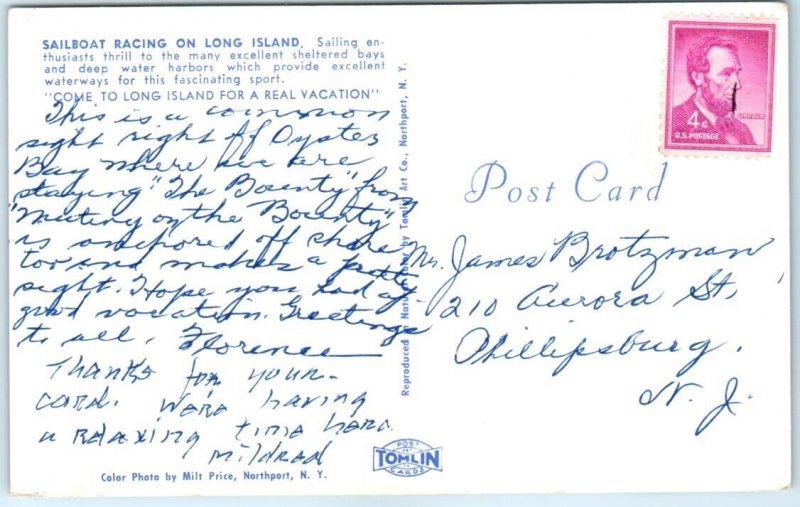 SAILBOAT RACING ON LONG ISLAND, Sailing en-
thusiasts thrill to the many excellent sheltered bays
and deep water harbors which provide excellent
waterways for this fascinating sport.
"COME TO LONG ISLAND FOR A REAL VACATION"
This is a common
sight right off Oyster
Bay where we are
staying "The Bounty" from
"Mutiny on the Bounty"
is anchored off shore
too and makes a
sight. Hope you had a
good vacation. Greetings
to all, Florence
Thanks for your
card. Were having
a relaxing time here.
mildred
Color Photo by Milt Price, Northport, N. Y.
Reproduced by Tomlin Art Co., Northport, N. Y.
POST
TOMLIN
CARDS
4¢
LINCOLN
U.S. POSTAGE
Post Card
Mr. James Brotzman
210 Aurora St,
Phillipsburg,
N. J.